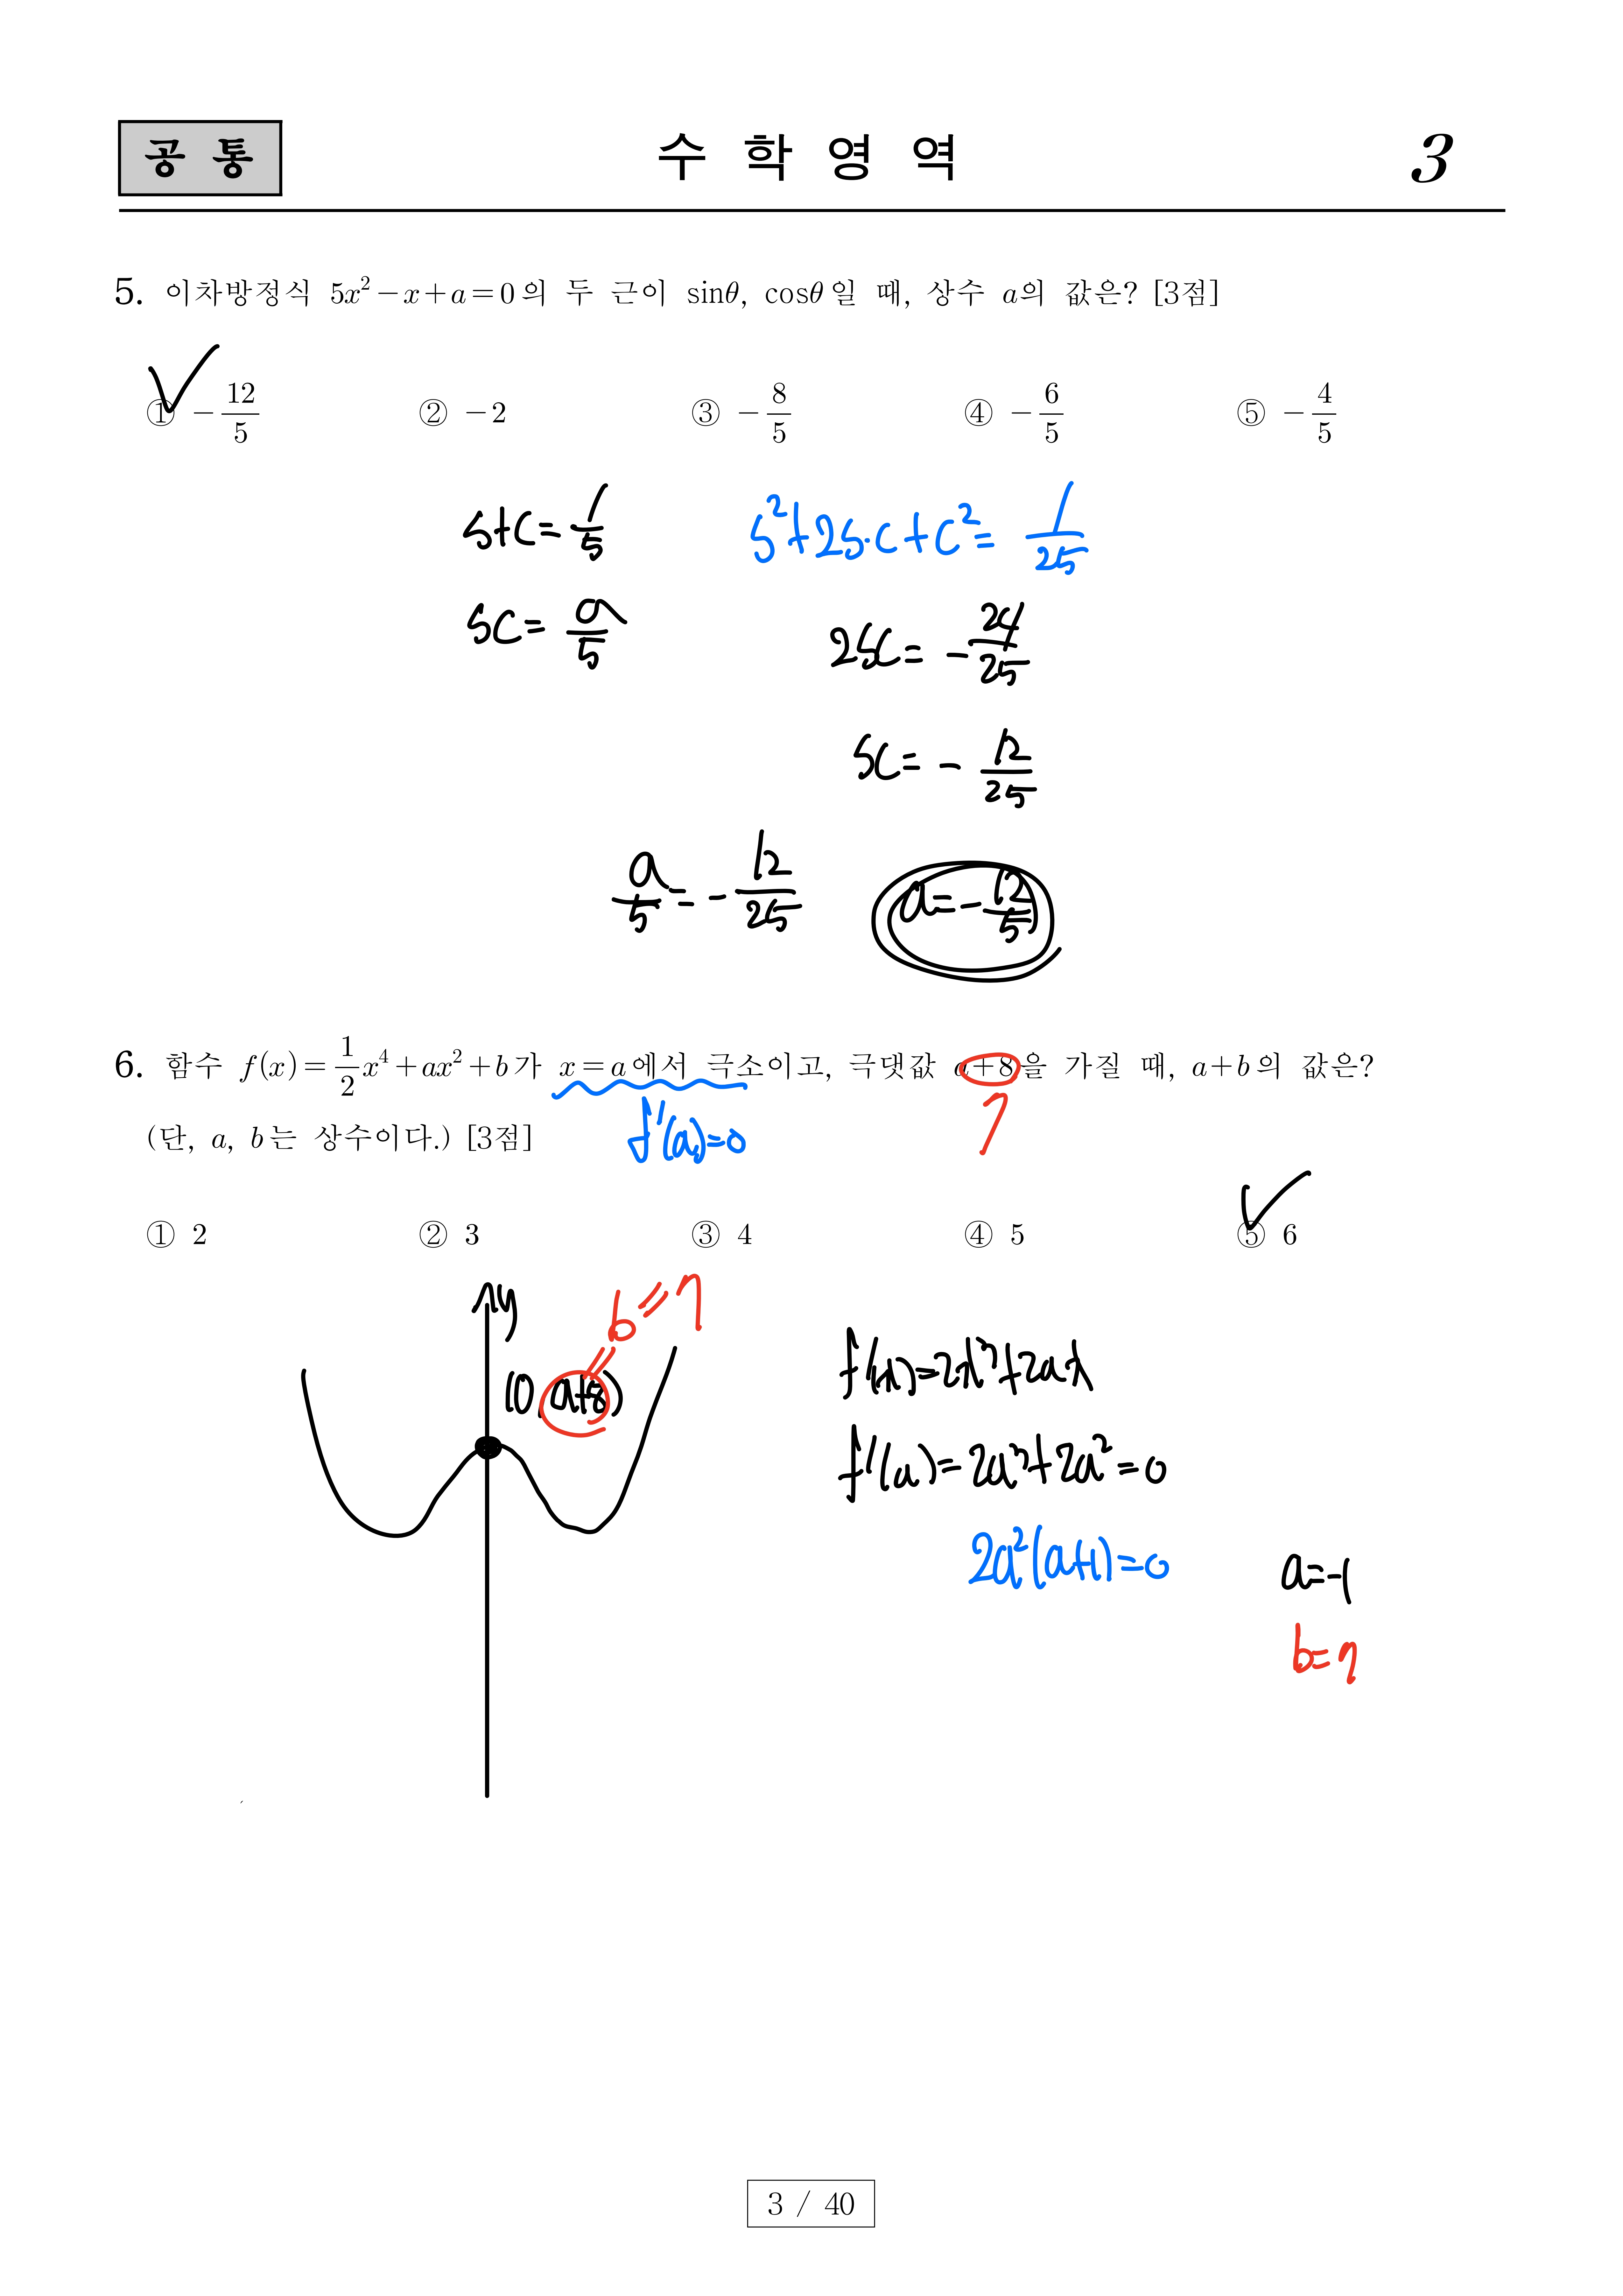 공 통
수 학 영 역
3
5. 이차방정식 5x²－x＋a＝0의 두 근이 sinθ, cosθ일 때, 상수 a의 값은? [3점]
① －12/5 ② －2 ③ －8/5 ④ －6/5 ⑤ －4/5
s+c=1/5
s²+2s·c+c²=1/25
sc=a/5
2sc=-24/25
sc=-12/25
a/5=-12/25
a=-12/5
6. 함수 f(x)＝1/2x⁴＋ax²＋b가 x＝a에서 극소이고, 극댓값 a＋8을 가질 때, a＋b의 값은?
7
f'(a)=0
(단, a, b는 상수이다.) [3점]
① 2 ② 3 ③ 4 ④ 5 ⑤ 6
y
b=7
(0, a+8)
f'(x)=2x³+2ax
f'(a)=2a³+2a²=0
2a²(a+1)=0
a=-1
b=7
3 / 40